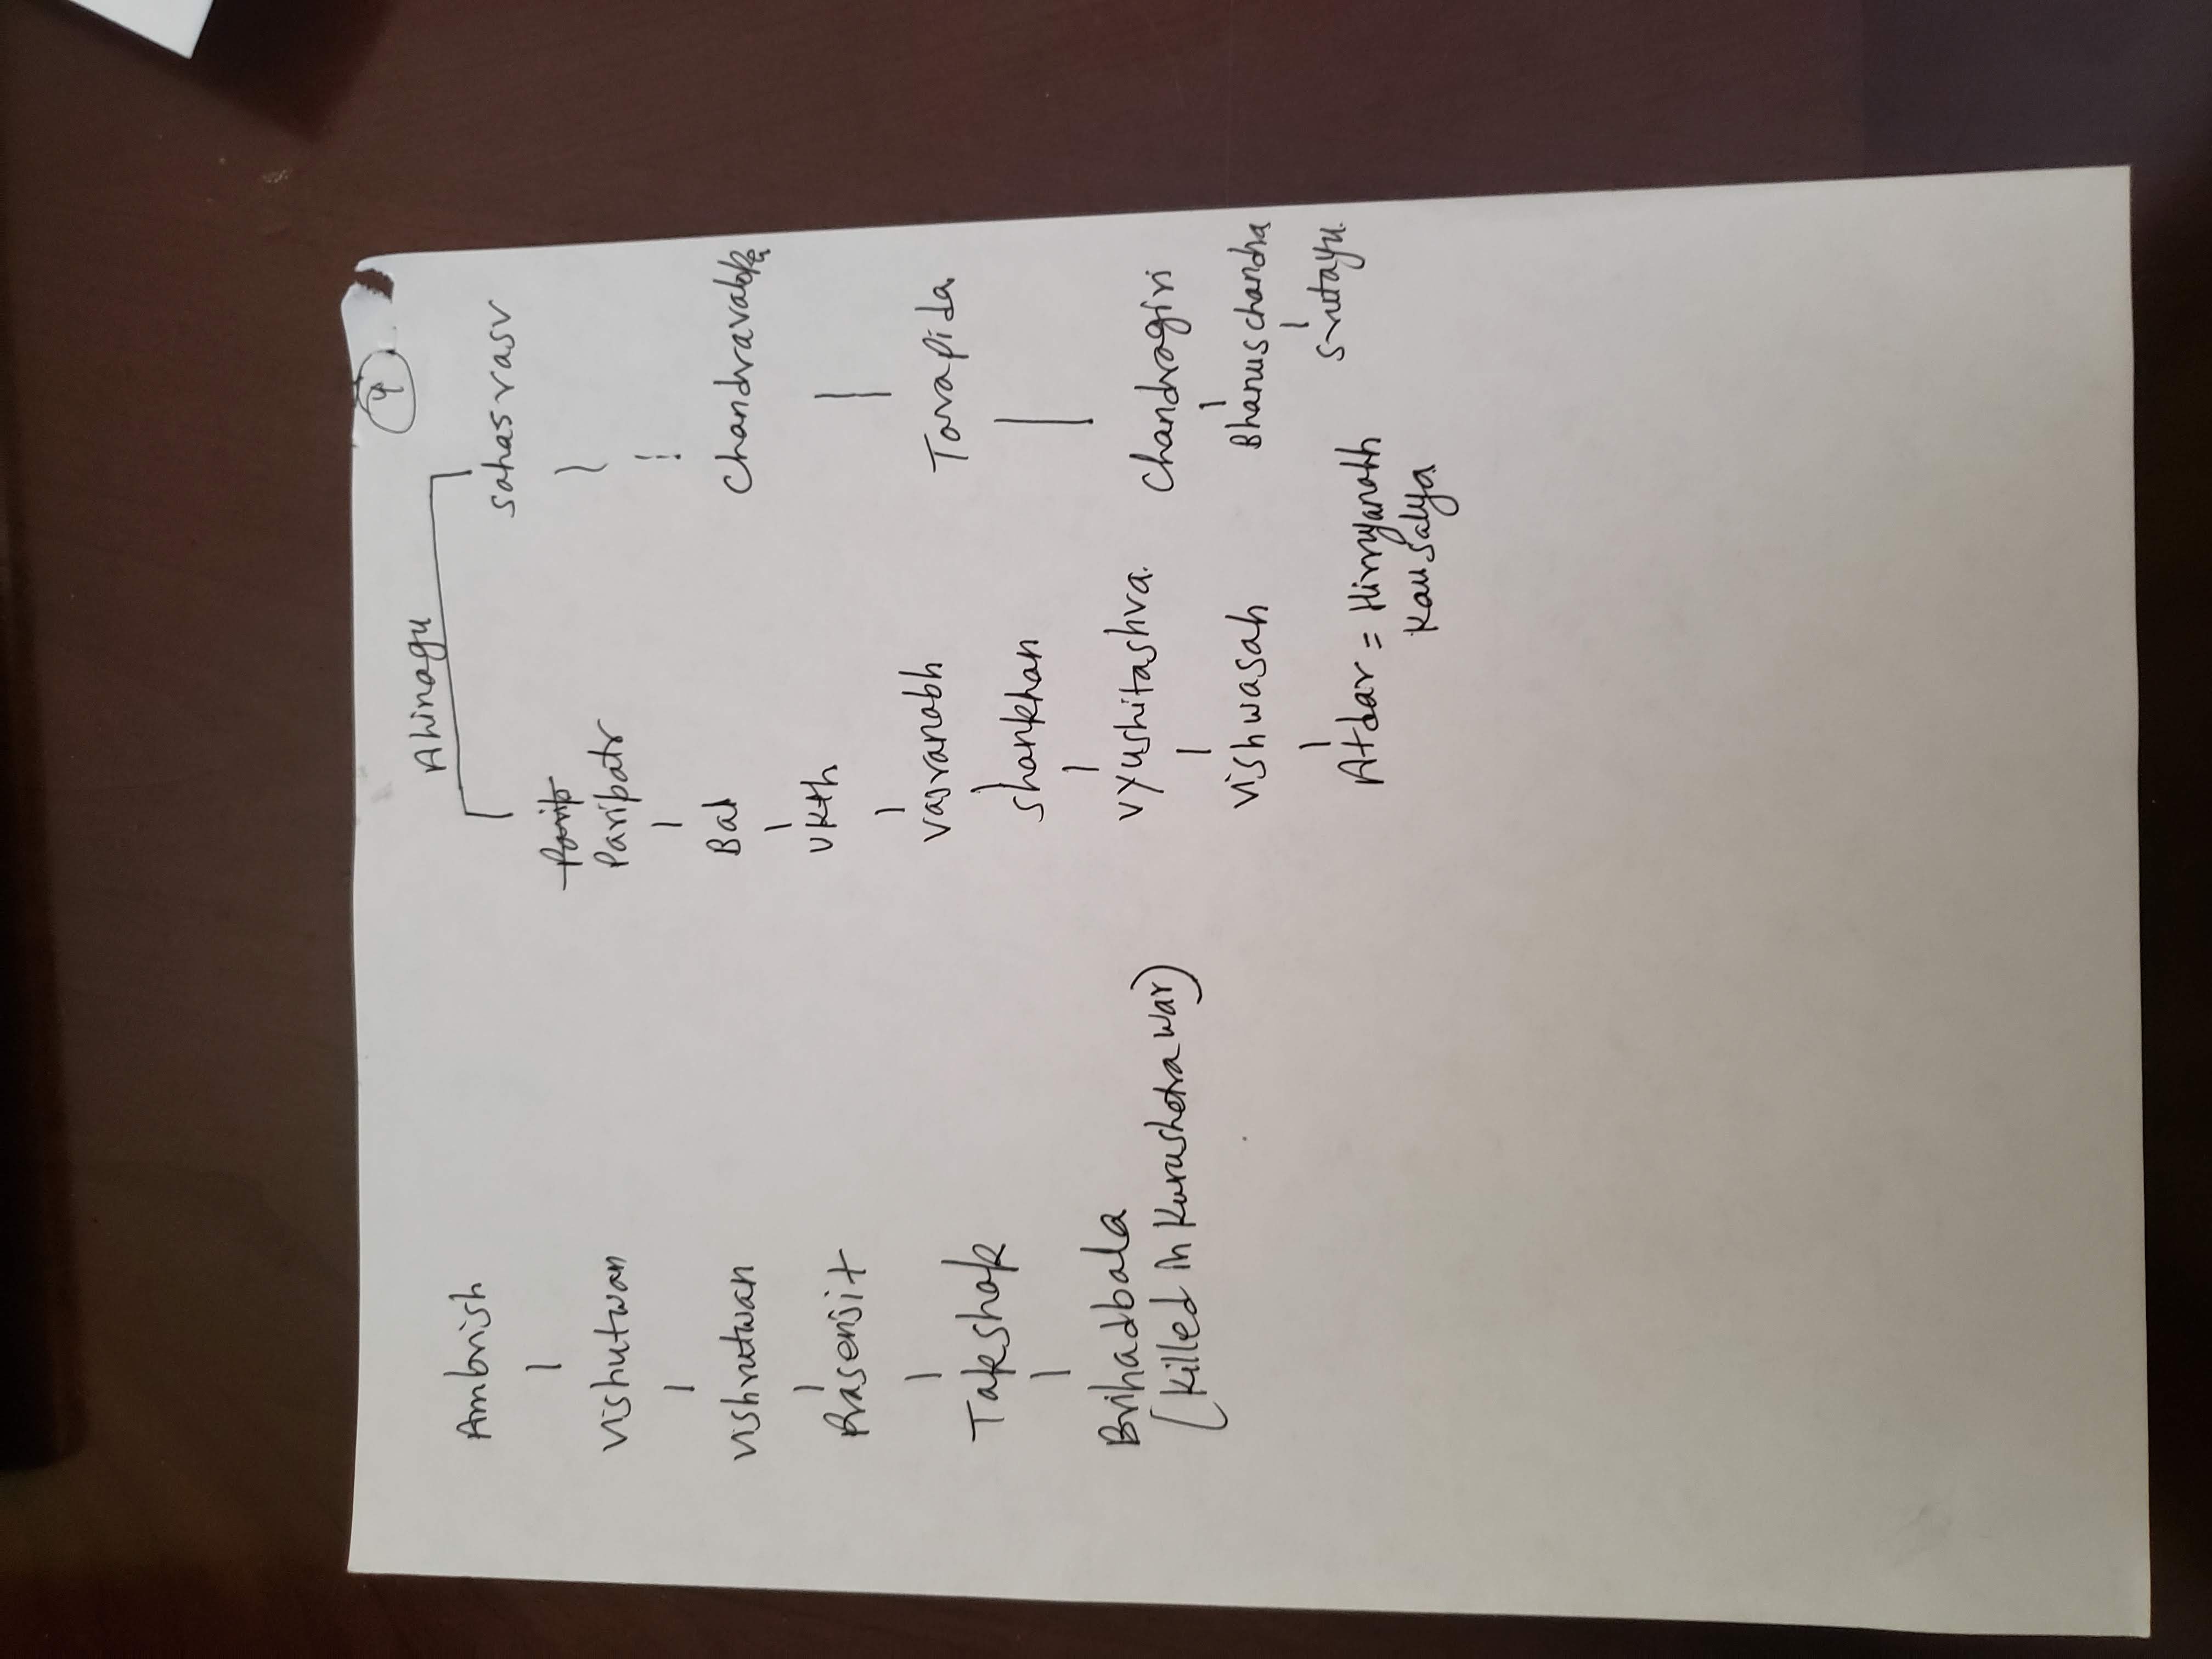 4
Ambrish
Vishutwan
Vishrutwan
Prasenjit
Takshak
Brihadbala
(killed in Kurushetra war)
Ahinagu
Paripatr
Bal
Ukth
Vajranabh
Shankhan
Vyushitashva.
Vishwasah
Atbar = Hirnyanabh
Kausalya
Sahasrasv
Chandravaloka
Tarapida
Chandragiri
Bhanuschandra
Srutayu.